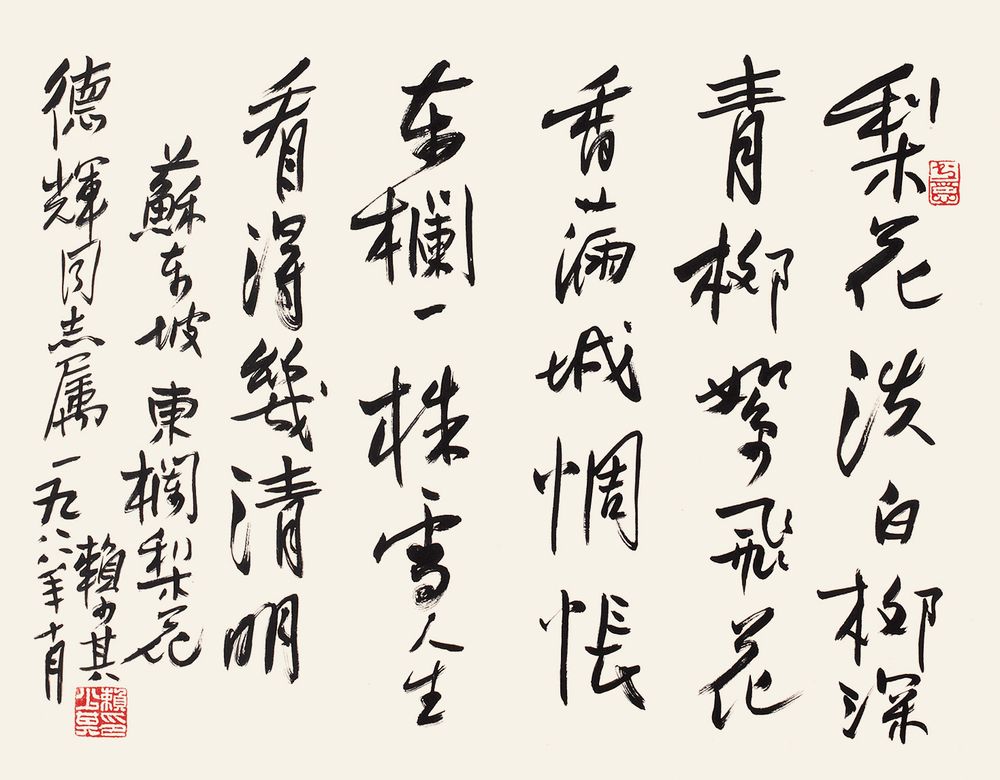 梨花淡白柳深
青柳絮飛花
香滿城惆悵
东欄一株雪人生
看得幾清明
蘇东坡東欄梨花
德輝同志属一九八八年十月
賴少其